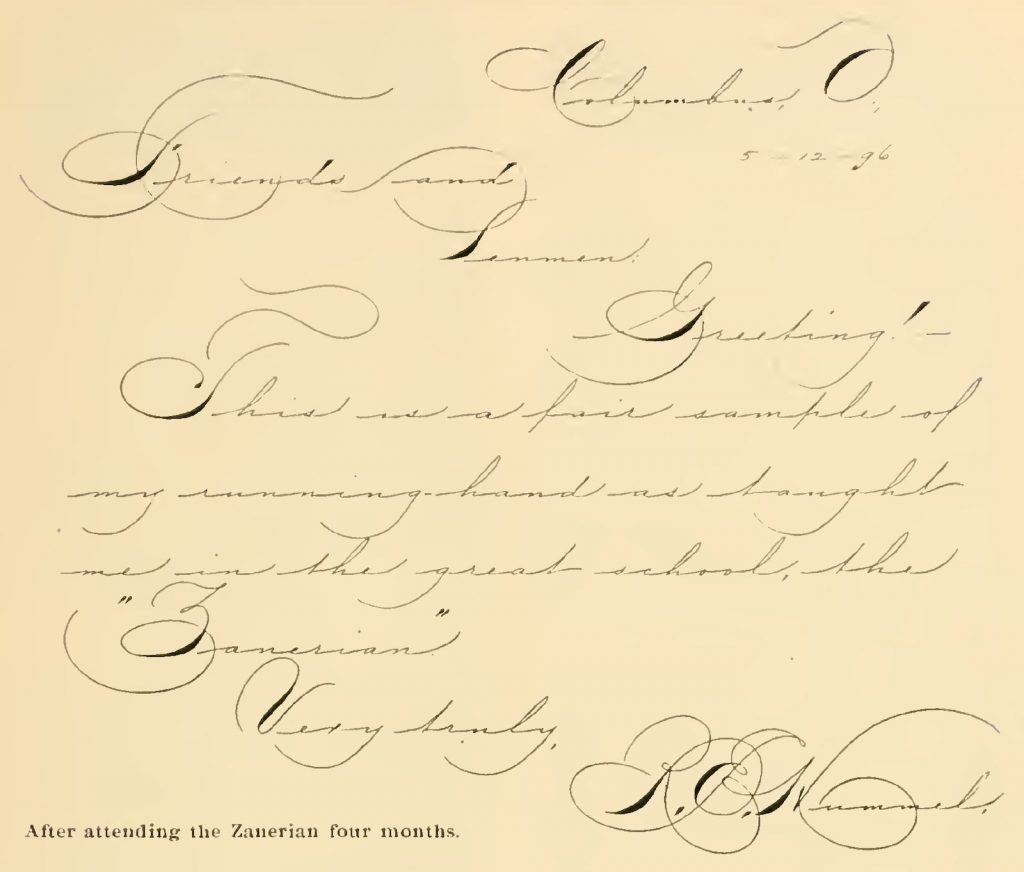 Columbus, O.,
5-12-96
Friends and
Penmen:
-Greeting!-
This is a fair sample of
my running-hand as taught
me in the great school, the
"Zanerian".
Very truly,
R. E. Hummel.
After attending the Zanerian four months.